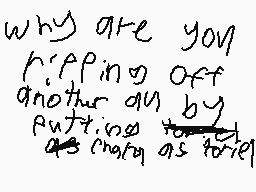 why are you
ripping off
another au by
putting
chara as toriel